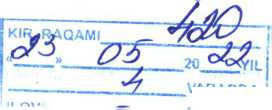 KIR. RAQAMI 420
«23» 05 2022 YIL
4 VARAQDA
ILOV